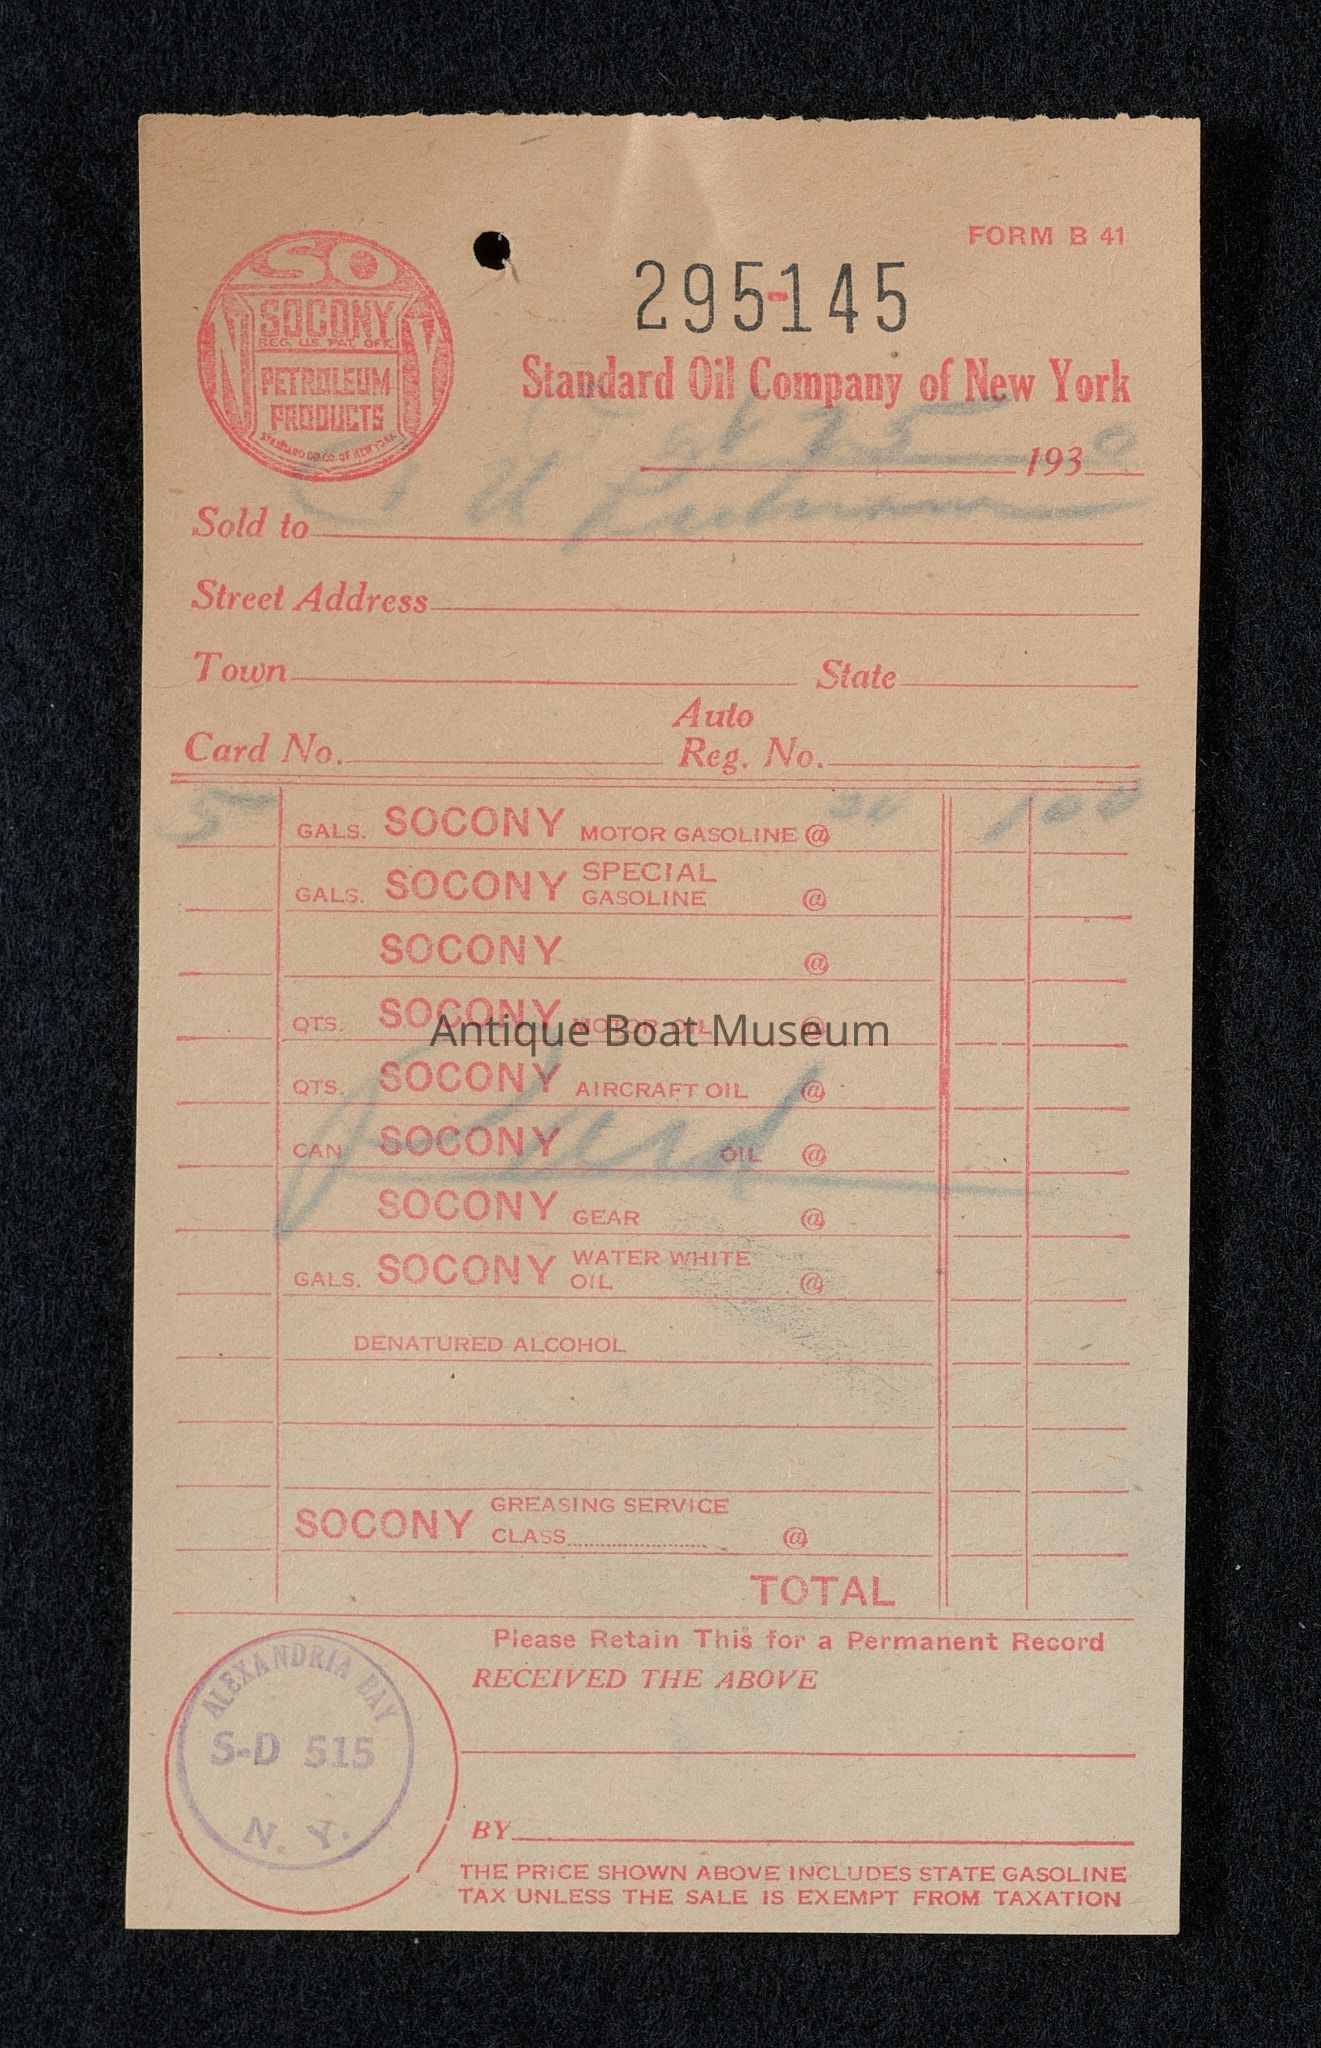 FORM B 41
SO
NY
SOCONY
REG. U.S. PAT. OFF.
PETROLEUM
PRODUCTS
STANDARD OIL CO. OF NEW YORK
295-145
Standard Oil Company of New York
25 1930
Sold to
Street Address
Town State
Auto
Card No. Reg. No.
5 GALS. SOCONY MOTOR GASOLINE @ 20 1 00
GALS. SOCONY SPECIAL GASOLINE @
SOCONY @
QTS. SOCONY MOTOR OIL @
Antique Boat Museum
QTS. SOCONY AIRCRAFT OIL @
Paid
CAN SOCONY OIL @
SOCONY GEAR @
GALS. SOCONY WATER WHITE OIL @
DENATURED ALCOHOL
SOCONY GREASING SERVICE CLASS @
TOTAL
Please Retain This for a Permanent Record
RECEIVED THE ABOVE
ALEXANDRIA BAY
S-D 515
N. Y.
BY
THE PRICE SHOWN ABOVE INCLUDES STATE GASOLINE
TAX UNLESS THE SALE IS EXEMPT FROM TAXATION